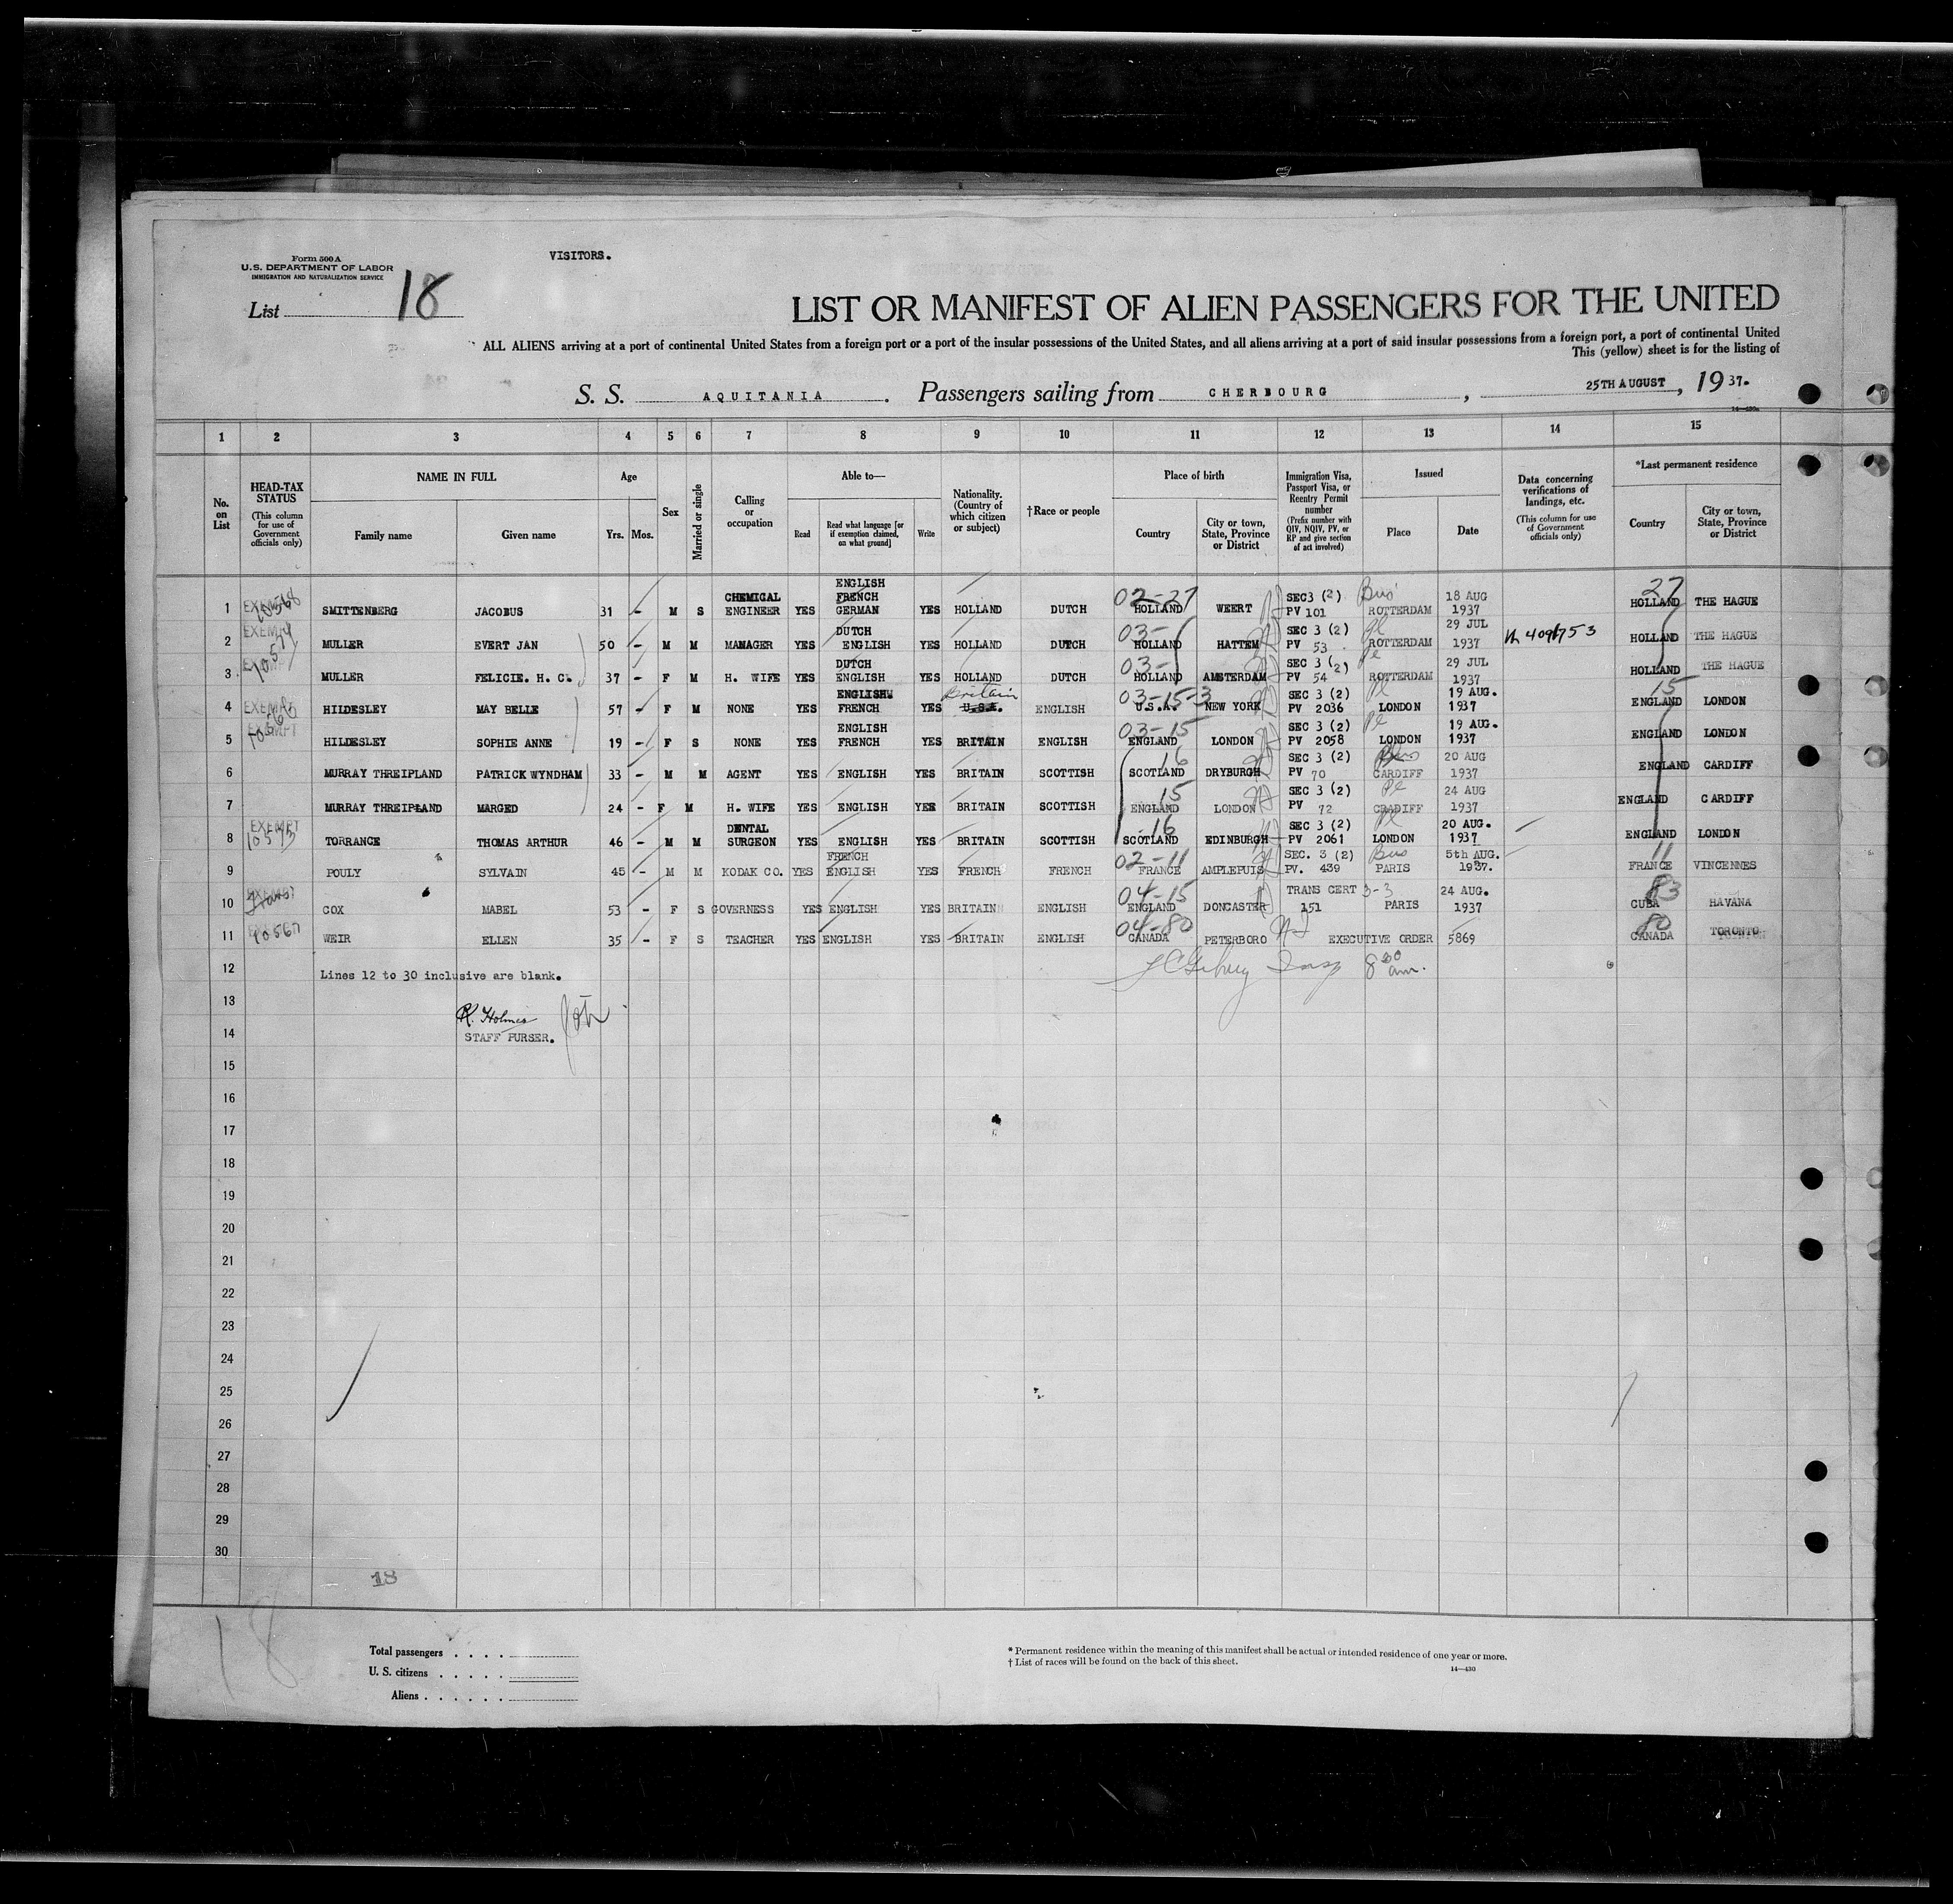 Form 500 A
U.S. DEPARTMENT OF LABOR
IMMIGRATION AND NATURALIZATION SERVICE
VISITORS.
List 18
LIST OR MANIFEST OF ALIEN PASSENGERS FOR THE UNITED
ALL ALIENS arriving at a port of continental United States from a foreign port or a port of the insular possessions of the United States, and all aliens arriving at a port of said insular possessions from a foreign port, a port of continental United
This (yellow) sheet is for the listing of
S. S. AQUITANIA. Passengers sailing from CHERBOURG, 25TH AUGUST, 19 37.
1 2 3 4 5 6 7 8 9 10 11 12 13 14 15
No. on List
HEAD-TAX STATUS (This column for use of Government officials only)
NAME IN FULL
Family name
Given name
Age
Yrs. Mos.
Sex
Married or single
Calling or occupation
Able to—
Read
Read what language [or if exemption claimed, on what ground]
Write
Nationality. (Country of which citizen or subject)
†Race or people
Place of birth
Country
City or town, State, Province or District
Immigration Visa, Passport Visa, or Reentry Permit number (Prefix number with QIV, NQIV, PV, or RP and give section of act involved)
Issued
Place
Date
Data concerning verifications of landings, etc. (This column for use of Government officials only)
*Last permanent residence
Country
City or town, State, Province or District
1 EXEMPT SMITTENBERG JACOBUS 31 - M S CHEMICAL ENGINEER YES ENGLISH FRENCH GERMAN YES HOLLAND DUTCH 02-27 HOLLAND WEERT SEC3 (2) PV 101 Bus ROTTERDAM 18 AUG 1937 27 HOLLAND THE HAGUE
2 EXEMPT MULLER EVERT JAN 50 - M M MANAGER YES DUTCH ENGLISH YES HOLLAND DUTCH 03- HOLLAND HATTEM SEC 3 (2) PV 53 Pl ROTTERDAM 29 JUL 1937 HOLLAND THE HAGUE
3 MULLER FELICIE. H. C. 37 - F M H. WIFE YES DUTCH ENGLISH YES HOLLAND DUTCH 03- HOLLAND AMSTERDAM SEC 3 (2) PV 54 Pl ROTTERDAM 29 JUL 1937 HOLLAND THE HAGUE
4 EXEMPT HILDESLEY MAY BELLE 57 - F M NONE YES ENGLISH FRENCH YES Britain U.S.A. ENGLISH 03-15-3 U.S.A. NEW YORK SEC 3 (2) PV 2036 Pl LONDON 19 AUG. 1937 15 ENGLAND LONDON
5 EXEMPT HILDESLEY SOPHIE ANNE 19 - F S NONE YES ENGLISH FRENCH YES BRITAIN ENGLISH 03-15 ENGLAND LONDON SEC 3 (2) PV 2058 Pl LONDON 19 AUG. 1937 ENGLAND LONDON
6 MURRAY THREIPLAND PATRICK WYNDHAM 33 - M M AGENT YES ENGLISH YES BRITAIN SCOTTISH 16 SCOTLAND DRYBURGH SEC 3 (2) PV 70 CARDIFF 20 AUG 1937 ENGLAND CARDIFF
7 MURRAY THREIPLAND MARGED 24 - F M H. WIFE YES ENGLISH YES BRITAIN SCOTTISH 15 ENGLAND LONDON SEC 3 (2) PV 72 Pl CRADIFF 24 AUG 1937 ENGLAND CARDIFF
8 EXEMPT 10573 TORRANCE THOMAS ARTHUR 46 - M M DENTAL SURGEON YES ENGLISH YES BRITAIN SCOTTISH 16 SCOTLAND EDINBURGH SEC 3 (2) PV 2061 Pl LONDON 20 AUG. 1937 ENGLAND LONDON
9 POULY SYLVAIN 45 - M M KODAK CO. YES FRENCH ENGLISH YES FRENCH FRENCH 02-11 FRANCE AMPLEPUIS SEC. 3 (2) PV. 439 Bus PARIS 5th AUG. 1937. 11 FRANCE VINCENNES
10 COX MABEL 53 - F S GOVERNESS YES ENGLISH YES BRITAIN ENGLISH 04-15 ENGLAND DONCASTER TRANS CERT 3-3 151 PARIS 24 AUG. 1937 83 CUBA HAVANA
11 10567 WEIR ELLEN 35 - F S TEACHER YES ENGLISH YES BRITAIN ENGLISH 04-80 CANADA PETERBORO EXECUTIVE ORDER 5869 80 CANADA TORONTO
12 Lines 12 to 30 inclusive are blank. 8 00 am.
13
R. Holmes
14 STAFF PURSER.
15
16
17
18
19
20
21
22
23
24
25
26
27
28
29
30
18
18
Total passengers
U. S. citizens
Aliens
* Permanent residence within the meaning of this manifest shall be actual or intended residence of one year or more.
† List of races will be found on the back of this sheet.
14—430